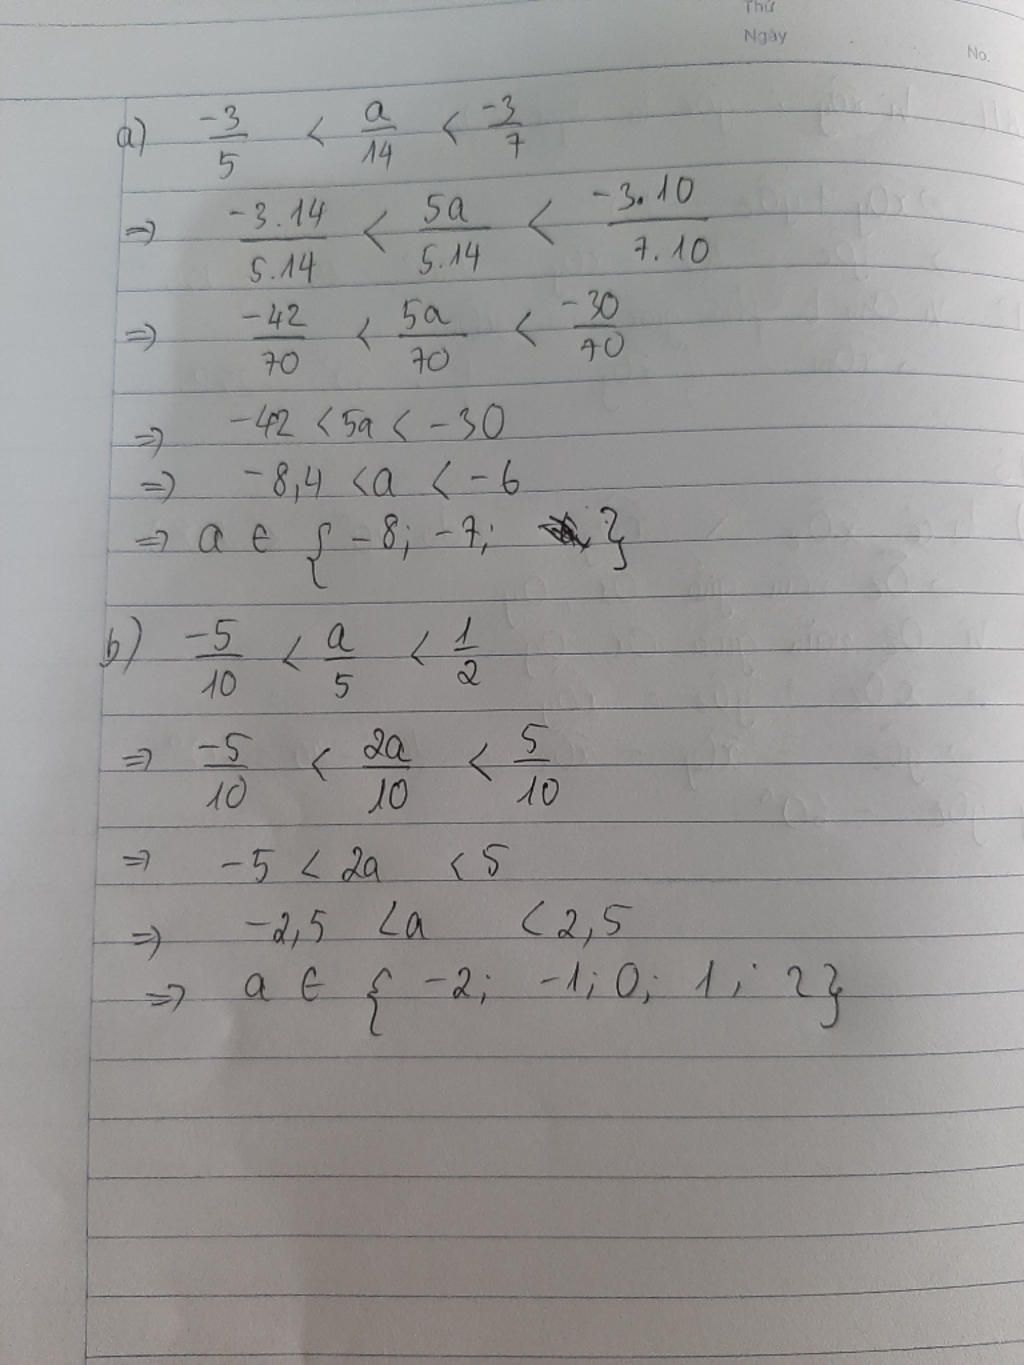 Thứ
Ngày
No.
a) -3/5 < a/14 < -3/7
=> -3.14/5.14 < 5a/5.14 < -3.10/7.10
=> -42/70 < 5a/70 < -30/70
=> -42 < 5a < -30
=> -8,4 < a < -6
=> a ∈ { -8; -7; }
b) -5/10 < a/5 < 1/2
=> -5/10 < 2a/10 < 5/10
=> -5 < 2a < 5
=> -2,5 < a < 2,5
=> a ∈ { -2; -1; 0; 1; 2}